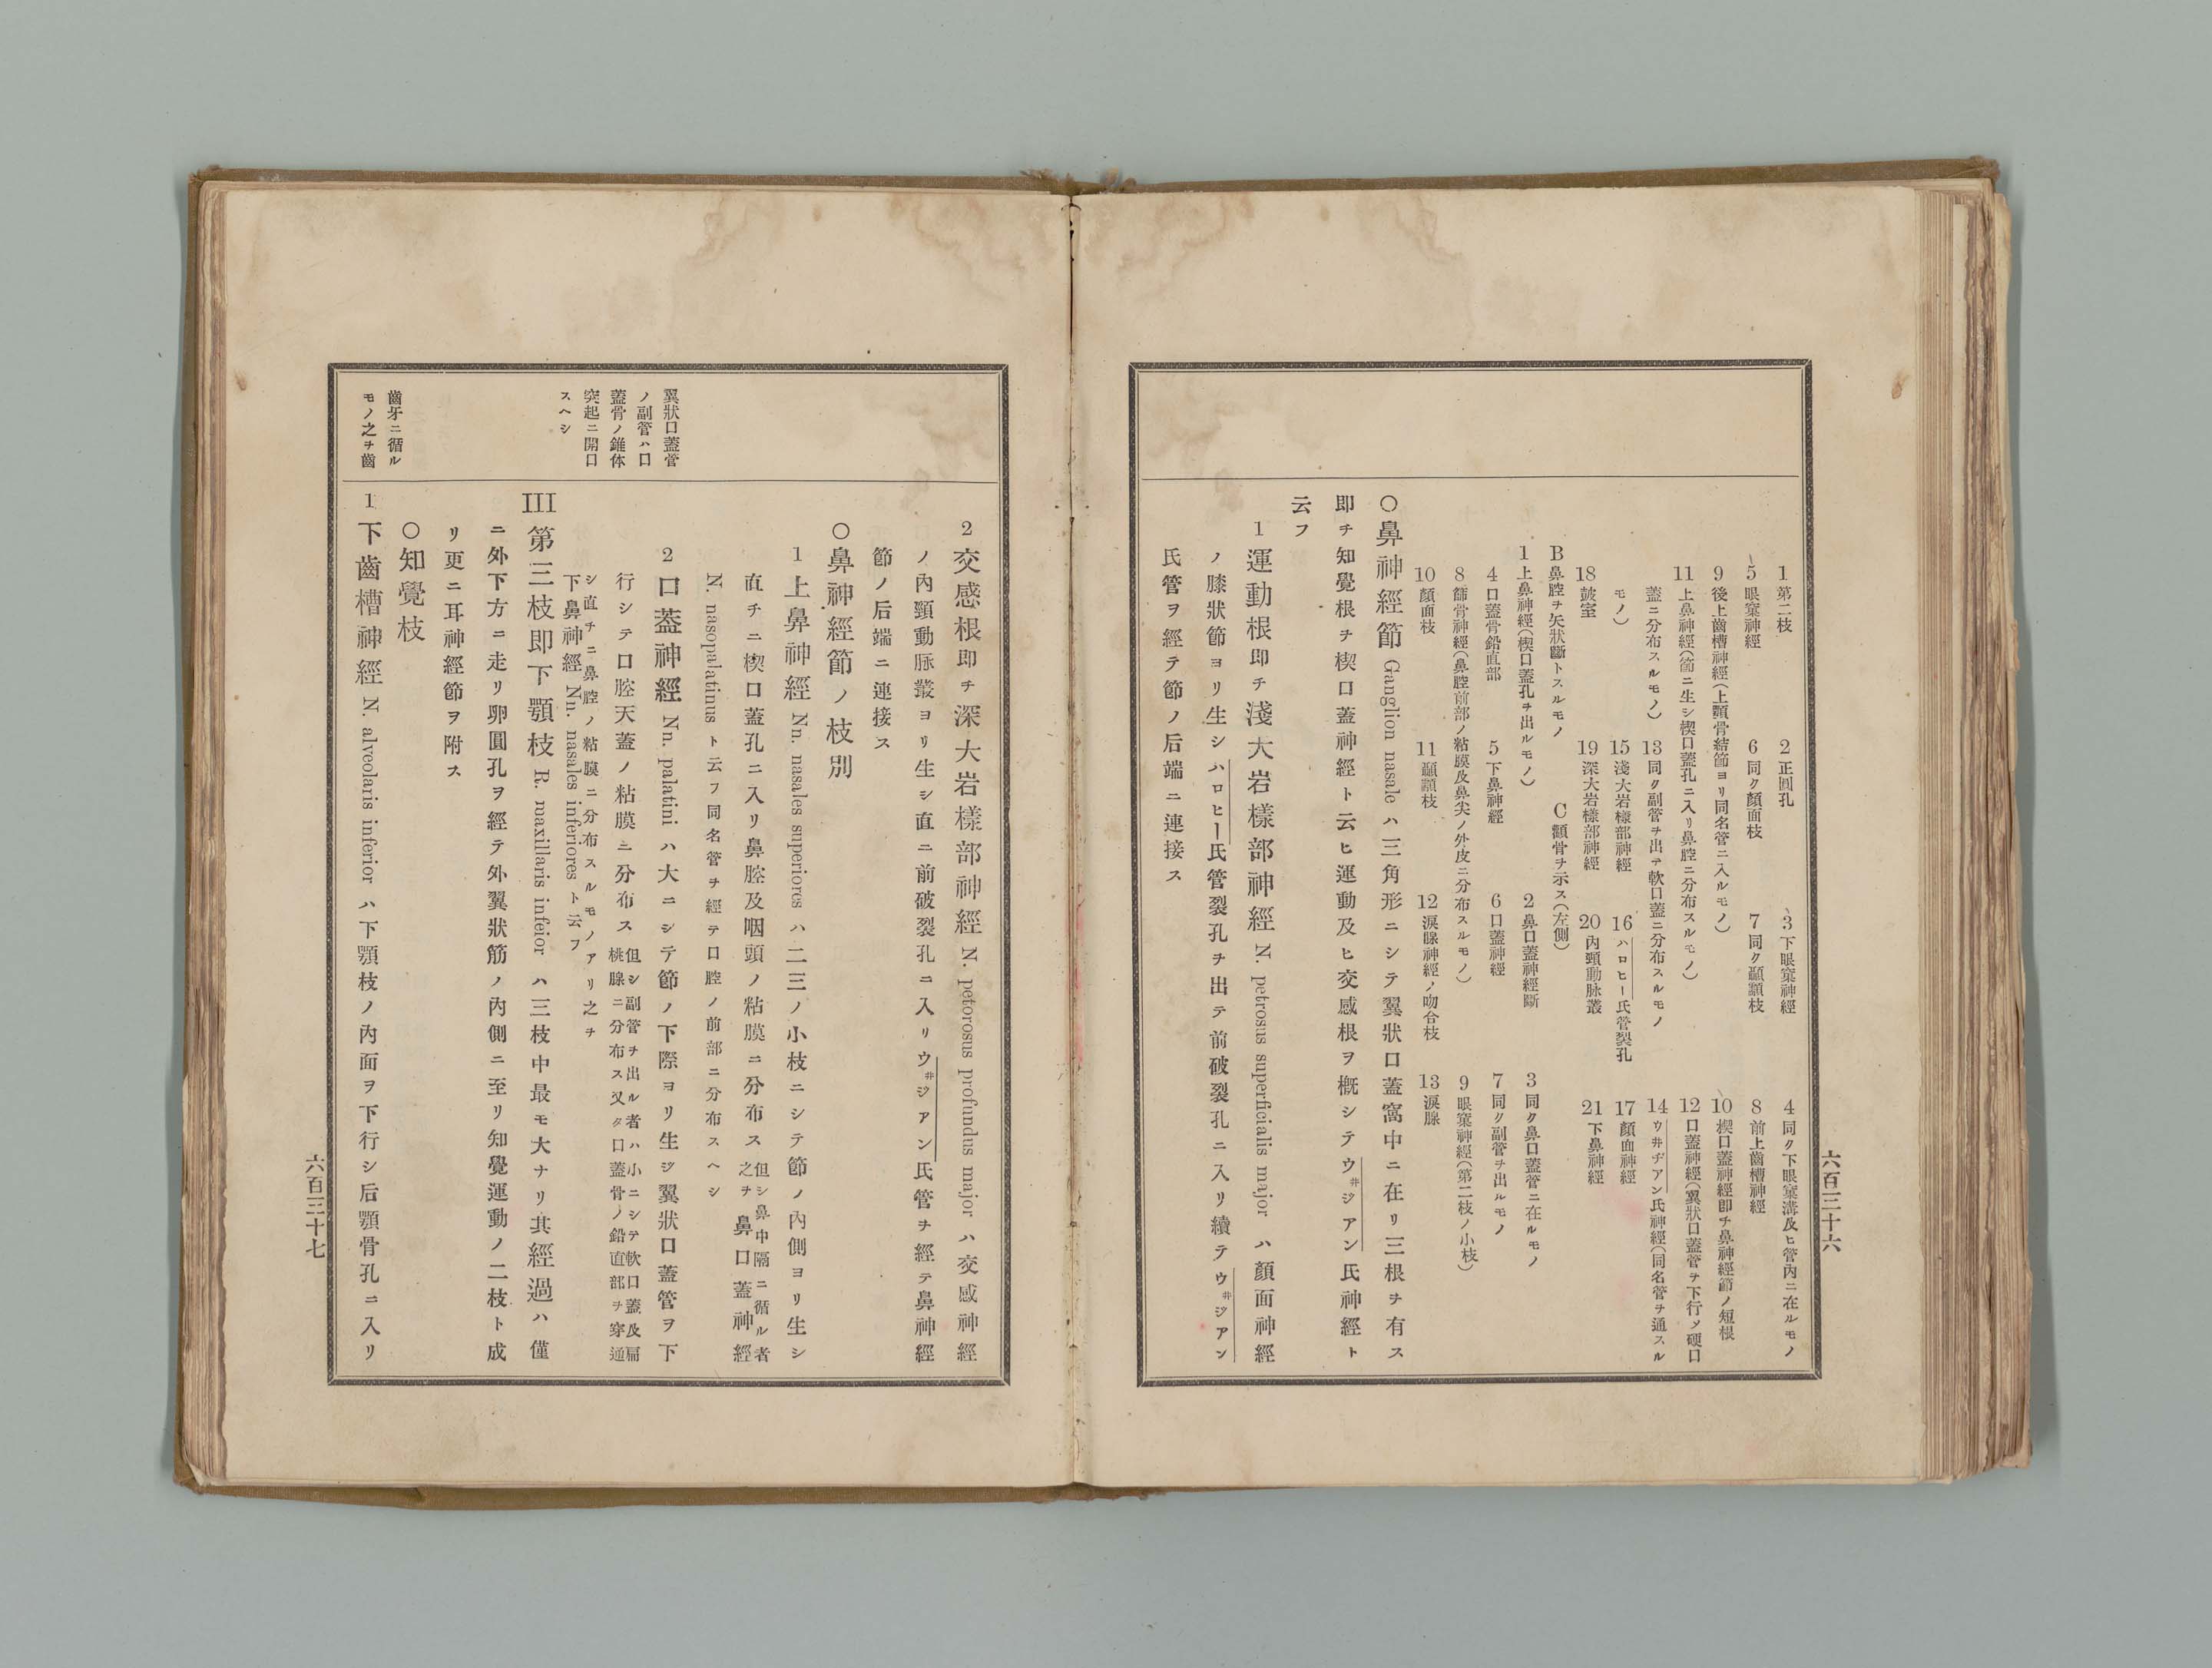 六百三十六
1 第二枝 2 正圓孔 3 下眼窠神經 4 同ク下眼窠溝及ヒ管內ニ在ルモノ
5 眼窠神經 6 同ク顏面枝 7 同ク顳顬枝 8 前上齒槽神經
9 後上齒槽神經(上顎骨結節ヨリ同名管ニ入ルモノ) 10 楔口蓋神經卽チ鼻神經節ノ短根
11 上鼻神經(節ニ生シ楔口蓋孔ニ入リ鼻腔ニ分布スルモノ) 12 口蓋神經(翼狀口蓋管ヲ下行シ硬口
蓋ニ分布スルモノ) 13 同ク副管ヲ出テ軟口蓋ニ分布スルモノ 14 ウ井ヂアン氏神經(同名管ヲ通スル
モノ) 15 淺大岩樣部神經 16 ハロヒー氏管裂孔 17 顏面神經
18 皷室 19 深大岩樣部神經 20 內頸動脉叢 21 下鼻神經
B 鼻腔ヲ矢狀斷トスルモノ C 顴骨ヲ示ス(左側)
1 上鼻神經(楔口蓋孔ヲ出ルモノ) 2 鼻口蓋神經斷 3 同ク鼻口蓋管ニ在ルモノ
4 口蓋骨鉛直部 5 下鼻神經 6 口蓋神經 7 同ク副管ヲ出ルモノ
8 篩骨神經(鼻腔前部ノ粘膜及鼻尖ノ外皮ニ分布スルモノ) 9 眼窠神經(第二枝ノ小枝)
10 顏面枝 11 顳顬枝 12 淚腺神經ノ吻合枝 13 淚腺
〇鼻神經節 Ganglion nasale ハ三角形ニシテ翼狀口蓋窩中ニ在リ三根ヲ有ス
卽チ知覺根ヲ楔口蓋神經ト云ヒ運動及ヒ交感根ヲ槪シテウ井ジアン氏神經ト
云フ
1 運動根卽チ淺大岩樣部神經 N. petrosus superficialis major ハ顏面神經
ノ膝狀節ヨリ生シハロヒー氏管裂孔ヲ出テ前破裂孔ニ入リ續テウ井ジアン
氏管ヲ經テ節ノ后端ニ連接ス
2 交感根卽チ深大岩樣部神經 N. petorosus profundus major ハ交感神經
ノ內頸動脉叢ヨリ生シ直ニ前破裂孔ニ入リウ井ジアン氏管ヲ經テ鼻神經
節ノ后端ニ連接ス
〇鼻神經節ノ枝別
1 上鼻神經 Nn. nasales superiores ハ二三ノ小枝ニシテ節ノ內側ヨリ生シ
直チニ楔口蓋孔ニ入リ鼻腔及咽頭ノ粘膜ニ分布ス 但シ鼻中隔ニ循ル者之ヲ 鼻口蓋神經
N. nasopalatinus ト云フ同名管ヲ經テ口腔ノ前部ニ分布スヘシ
翼狀口蓋管
ノ副管ハ口
蓋骨ノ錐体
突起ニ開口
スヘシ
2 口蓋神經 Nn. palatini ハ大ニシテ節ノ下際ヨリ生シ翼狀口蓋管ヲ下
行シテ口腔天蓋ノ粘膜ニ分布ス 但シ副管ヲ出ル者ハ小ニシテ軟口蓋及扁桃腺ニ分布ス又タ口蓋骨ノ鉛直部ヲ穿通
シ直チニ鼻腔ノ粘膜ニ分布スルモノアリ之ヲ
下鼻神經 Nn. nasales inferiores ト云フ
III 第三枝卽下顎枝 R. maxillaris infeior ハ三枝中最モ大ナリ其經過ハ僅
ニ外下方ニ走リ卵圓孔ヲ經テ外翼狀筋ノ內側ニ至リ知覺運動ノ二枝ト成
リ更ニ耳神經節ヲ附ス
〇知覺枝
齒牙ニ循ル
モノ之ヲ齒
1 下齒槽神經 N. alveolaris inferior ハ下顎枝ノ內面ヲ下行シ后顎骨孔ニ入リ
六百三十七